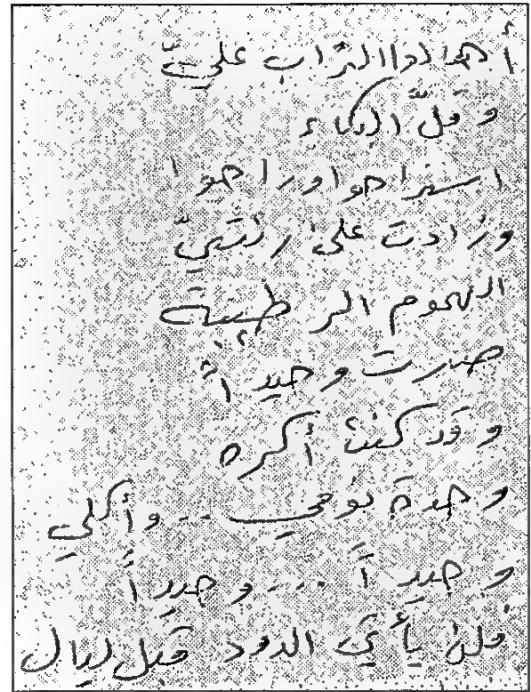 أهالوا التراب عليّ
وقلَّ البكاء
استراحوا وراحوا
وزادت على رئتيّ
الهموم الرطيبة
صرت وحيداً
وقد كنت أكره
وحدة نومي .. وأكلي
وحيداً .... وحيداً
فلن يأتي الدود قبل ليال